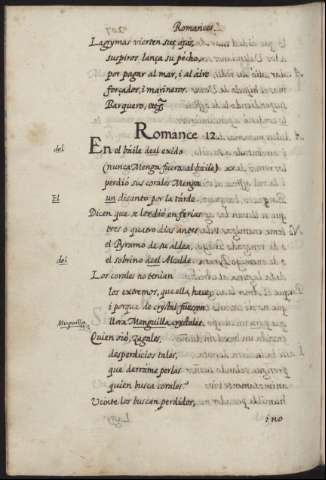 Romances.
Lagrymas vierten sus ojos,
suspiros lança su pecho,
por pagar al mar, i al aire
forçados, i marineros.
Barquero, etc.
Romance 12.
del En el baile deel exido
(nunca Menga fuera al baile)
perdió sus corales Menga
El un disanto por la tarde.
Dicen que se los dió en ferias
tres o quatro dias antes
el Pyramo de su aldea,
del el sobrino deel Alcalde.
Los corales no tenian
los extremos, que ella hace,
i porque de crystal fuessen
Minguilla llora Menguilla crystales.
Quien vió, zagales,
desperdicios tales,
que derrame perlas
quien busca corales?
Veinte los buscan perdidos,
i no